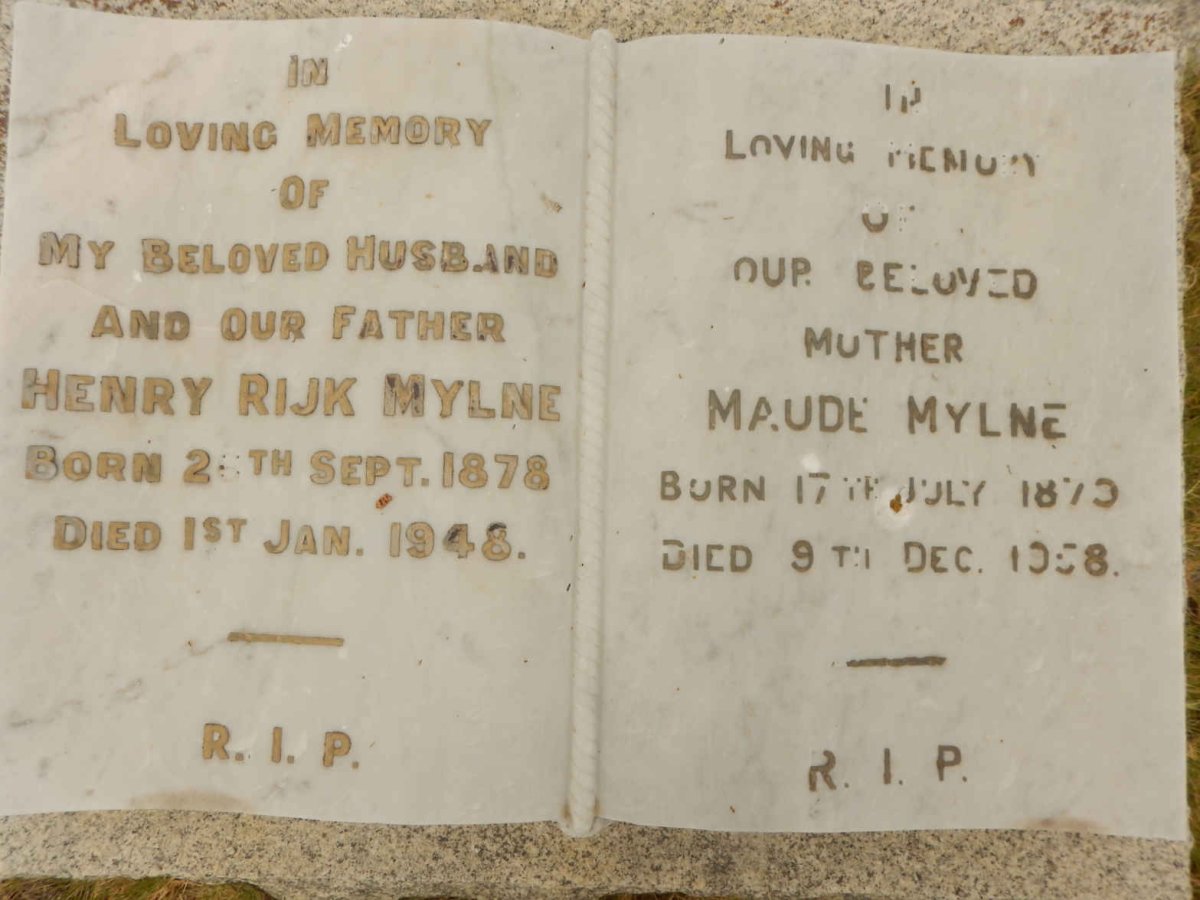 IN
LOVING MEMORY
OF
MY BELOVED HUSBAND
AND OUR FATHER
HENRY RIJK MYLNE
BORN SEPT. 1878
DIED 1ST JAN. 1948.
R. I. P.
IN
LOVING MEMORY
OF
OUR BELOVED
MOTHER
MAUDE MYLNE
BORN 17TH JULY
DIED 9TH DEC.
R. I. P.